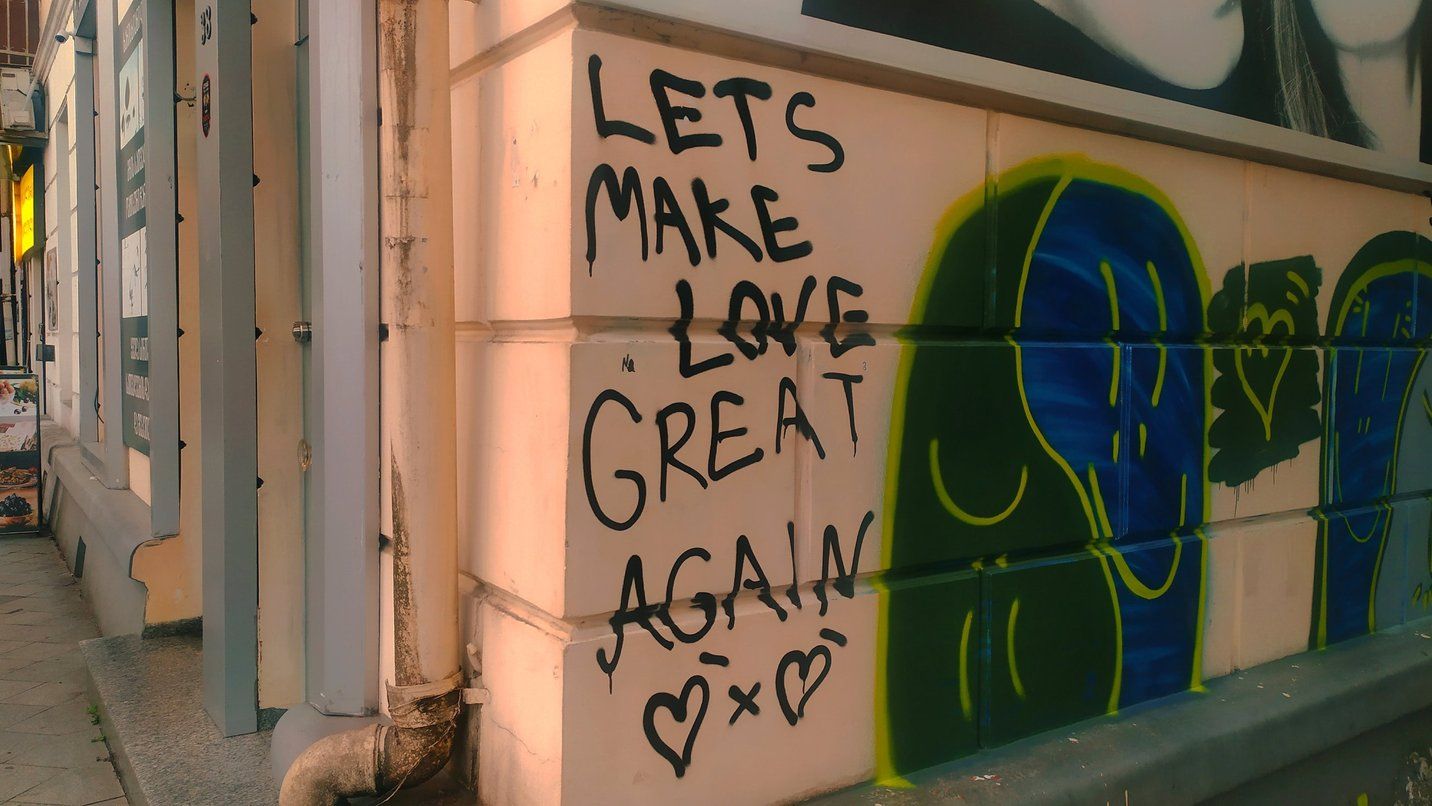 38
LETS
MAKE
LOVE
GREAT
AGAIN